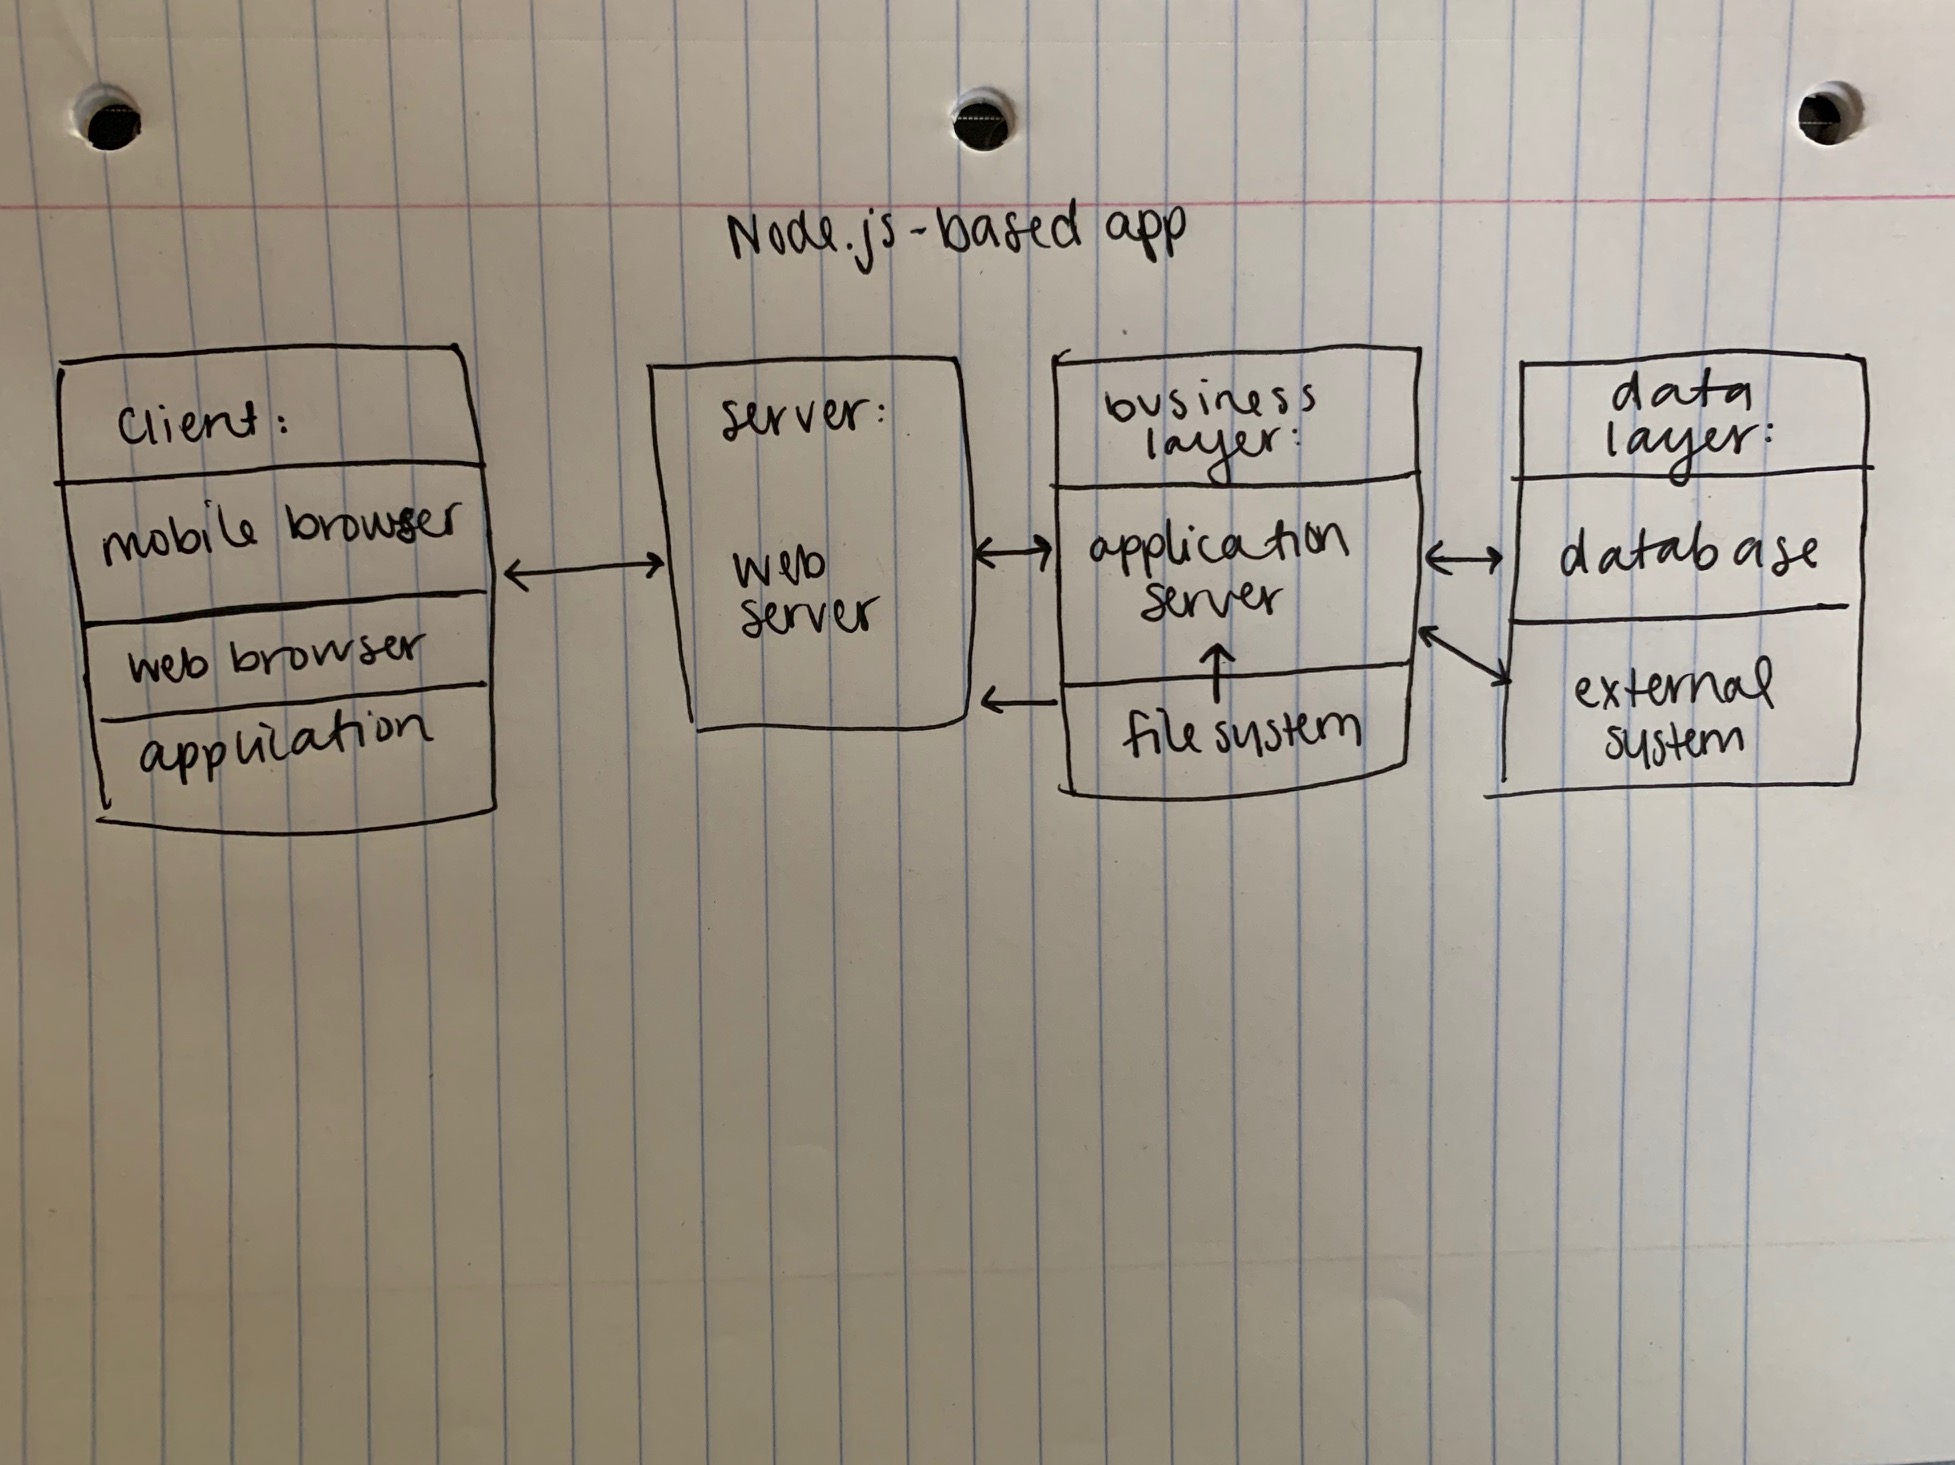 Node.js-based app
Client:
mobile browser
web browser
application
server:
web
server
business
layer:
application
server
file system
data
layer:
database
external
system